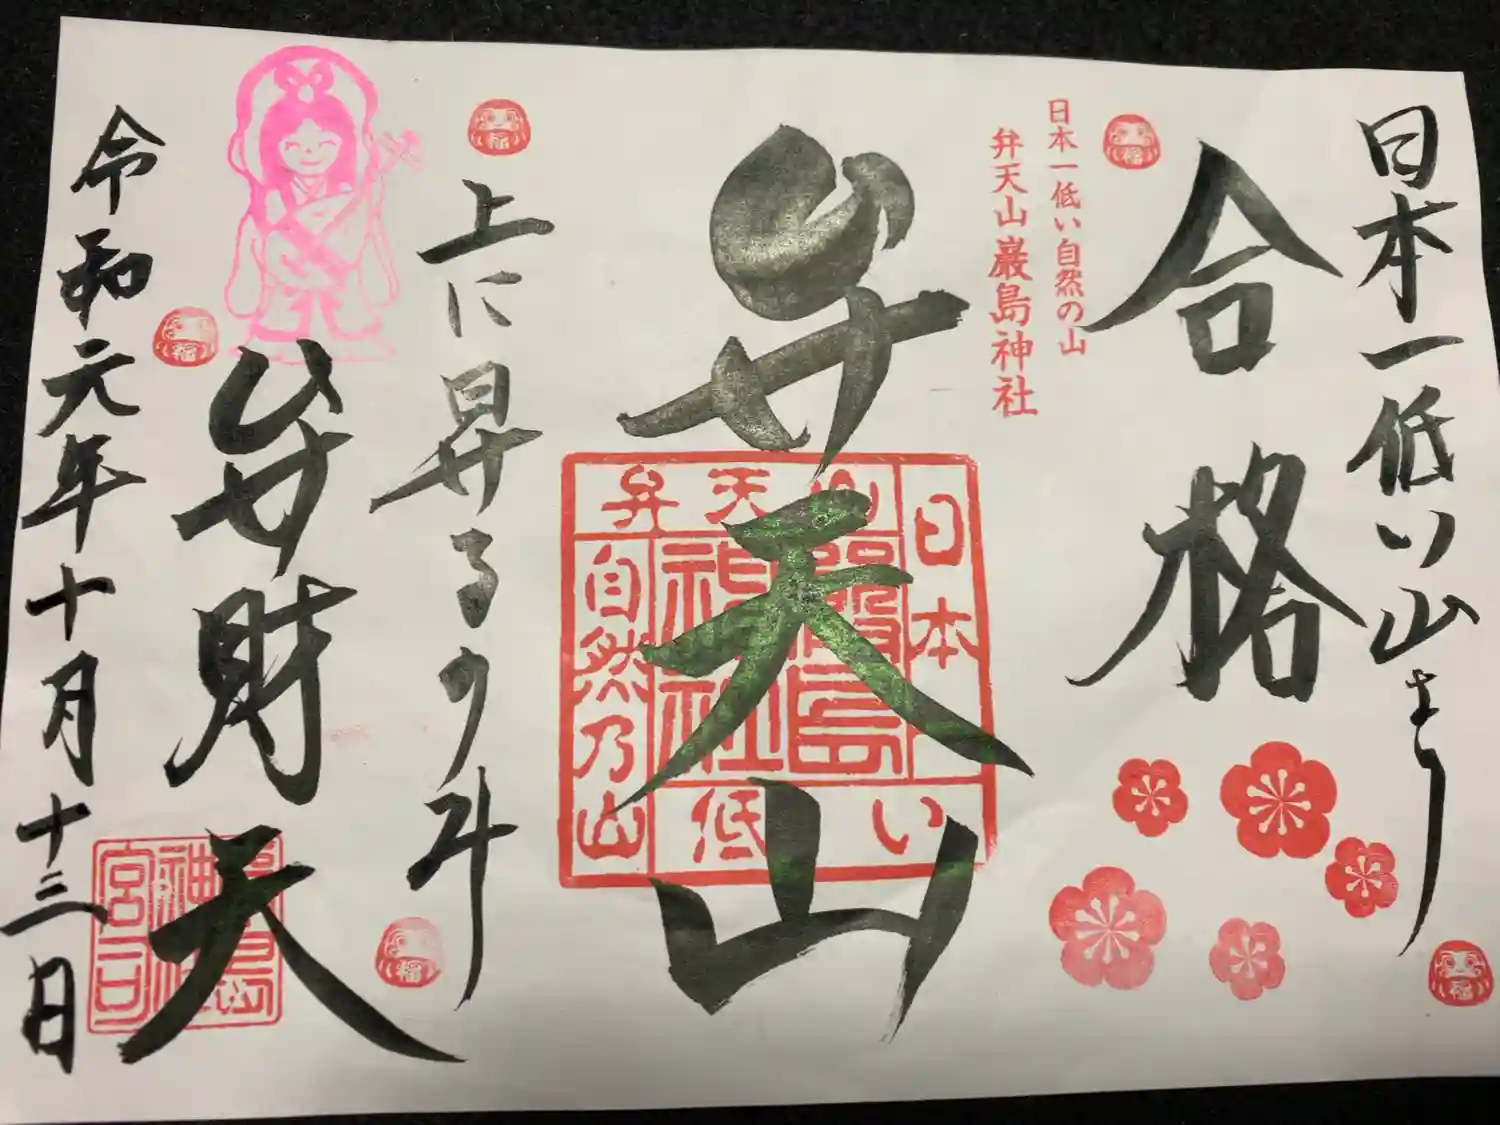 日本一低い山より
合格
日本一低い自然の山
弁天山巌島神社
弁天山
日本
一
低い
弁天山
自然乃山
巌島
神社
上に昇るのみ
弁財天
宮司
令和元年十月十三日
福
福
福
福
福